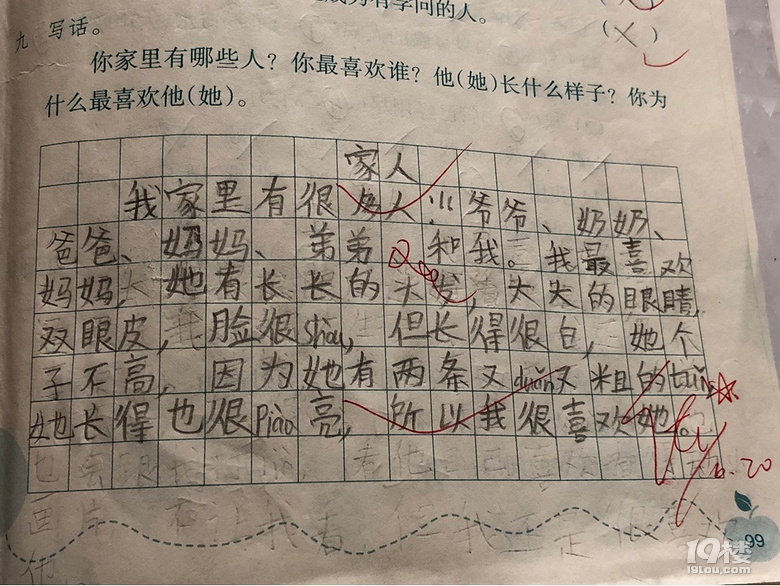 有学问的人。
(×)
九 写话。
你家里有哪些人？你最喜欢谁？他(她)长什么样子？你为
什么最喜欢他(她)。
家人
我家里有很多人，爷爷、奶奶、
爸爸、妈妈、弟弟和我。我最喜欢
妈妈，她有长长的头发，大大的眼睛，
双眼皮，脸很shòu，但长得很白，她个
子不高。因为她有两条又duǎn又粗的tuǐ，
她长得也很piào亮，所以我很喜欢她。
6.20
99
19楼
19lou.com